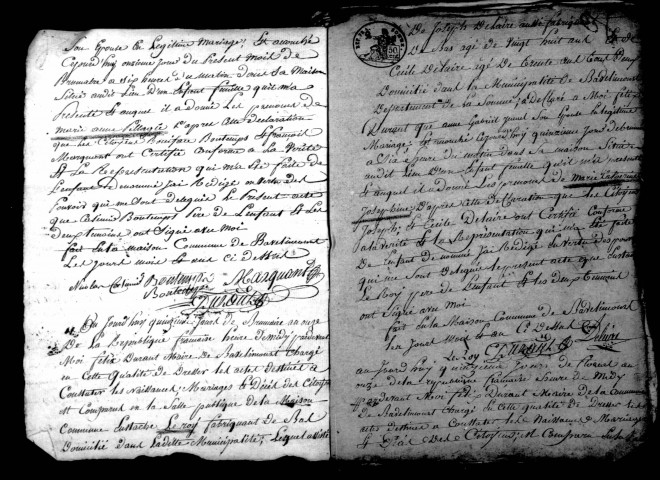 Son Epouse En Legitime Mariage, Et accouché
Cejourd'huy onzieme jour du Present Mois de
Brumaire a six heures du matin dans sa Maison
Sitüée audit Lieu D'un Enfant femelle quil m'a
Presenté Et auquel il a donné Les prenoms de
marie anne Pelagie D'apres cette Declaration
que Les Citoyens Boniface Bontemps Et francois
Marquant ont Certifié Conforme a La Verité
Et La Representation qui m'a Eté faite de
L'enfant Denommé J'ai Redigé en Vertu des
Pouvoirs qui me sont delegués Le Present acte
que Bontemps Pere de L'enfant Et Les
deux temoins ont Signé avec Moi
fait En La maison Commune de Badelincourt
Les jour mois Et an Ci dessus
Bontemps Marquant
Bontemps
Durant
Du Jourd'huy quinzieme Jour de Brumaire an onze
De La Republique francaise heure de Midy pardevant
Moi felix Durant Maire de Badelincourt Chargé
en Cette Qualité de Dresser Les actes destinés a
Constater Les Naissances, Mariages Et Décès des Citoyens
Est Comparu en La Salle publique de la Maison
Commune Eustache Le roy fabriquant de Bas
Domicilié dans Ladite Municipalité, Lequel assisté
De Joseph Delaire aussi fabriquant
De Bas agé de Vingt huit ans Et De
Cecile Delaire agé De Trente ans tous Deux
Domicilié dans La Municipalité de Badelincourt
Departement de la Somme, a Declaré a Moi felix
Durant que anne Gabriel Son Epouse En Legitime
Mariage, Est accouché Cejourd'huy quinzieme Jour de brumaire
a Six heures du matin dans sa maison Sitüée
audit Lieu D'un Enfant femelle qu'il m'a presenté
Et auquel il a donné Les prenoms de Marie Catherine
Josephine, D'apres cette Declaration que Les Citoyens
Joseph Et Cecile Delaire ont Certifié Conforme
a La verité Et La Representation qui m'a Eté faite
De L'enfant denommé J'ai Redigé en Vertu des pouvoirs
qui me sont Delegués Le present acte que Eustache
Le Roy pere de L'enfant Et Les deux Temoins
ont Signé avec Moi
fait En La Maison Commune de Badelincourt
Les Jour Mois Et an Ci Dessus
Le Roy Durant Delaire
au Jourd'huy quinzieme Jour de floreal an
onze de La republique francaise heure de Midy
pardevant Moi felix Durant Maire de La Commune
de Badelincourt Chargé En Cette qualité De Dresser Les
actes destinés a Constater Les Naissances Mariages
Et Décès Des Citoyens, Est Comparu En La Salle